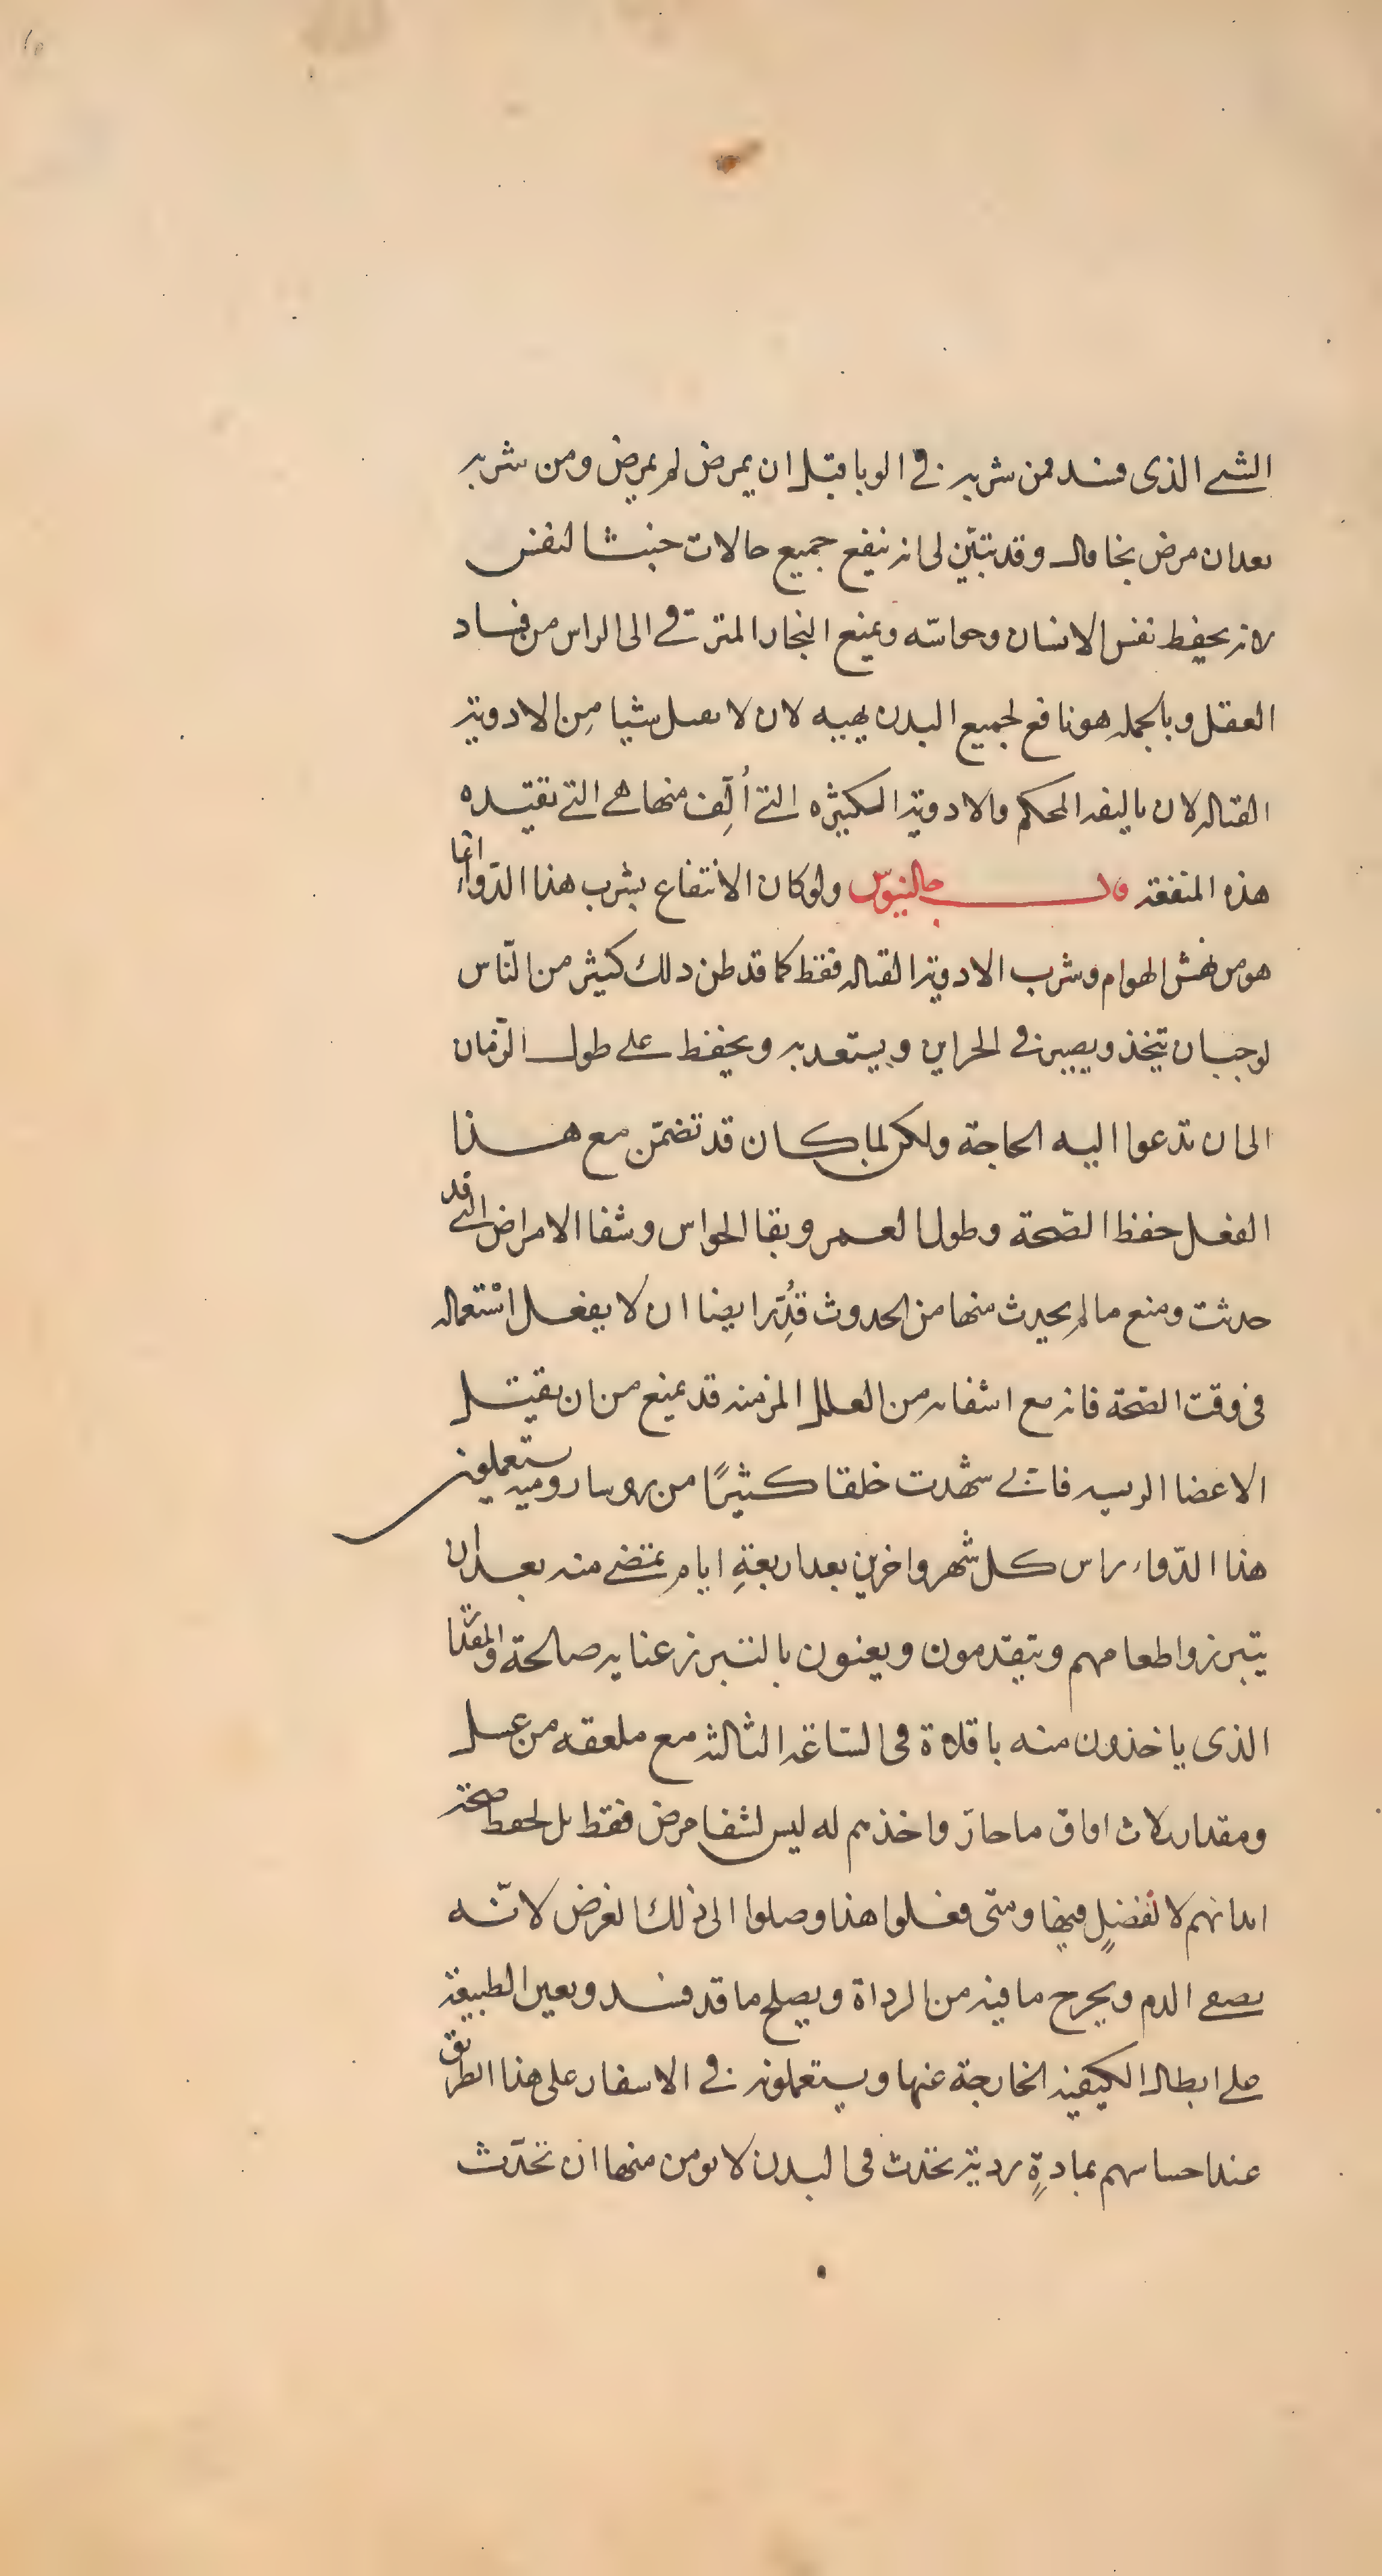 ١٥
الشى الذى فسد فمن شربه فى الوبا قبل ان يمرض لم يمرض ومن شربه
بعد ان مرض نجا قال وقد تبيّن لى انه ينفع جميع حالات خبث النفس
لانه يحفظ نفس الانسان وحواسّه ويمنع البخار المترقى الى الراس من فساد
العقل وبالجمله هو نافع لجميع البدن لان لا شيا مِن الادوية
القتاله لان تاليفه المحكم والادوية الكثيره التى أُلِّف منها هى التى تفيده
هذه المنفعة قال جالينوس ولو كان الانتفاع بشرب هذا الدّواء انما
هو من نهش الهوام وشرب الادوية القتاله فقط كما قد ظن ذلك كثير من النّاس
لوجب ان يتخذ ويصير فى الخزاين ويستعد به ويحفظ على طول الزّمان
الى ان تدعوا اليه الحاجة ولكن لما كان قد تضمّن مع هذا
الفعل حفظ الصّحة وطول العمر وبقا الحواس وشفا الامراض التى قد
حدثت ومنع ما لم يحدث منها من الحدوث قُدِّر ايضا ان لا يغفل استعماله
فى وقت الصّحة فانه مع اشفايه من العلل المزمنه قد يمنع من ان يقبل
الاعضا الرييسه فانّى شهدت خلقا كثيرًا من روسا روميه يستعملونه
هذا الدّواء راس كل شهر واخرين بعد اربعةِ ايام تمضى منه بعد ان
يتبرزوا طعامهم ويتقدمون ويعنون بالتبرز عنايه صالحة والمقدار
الذى ياخذون منه باقلاة فى السّاعة الثالثه مع ملعقه من عسل
ومقدار ثلاث اواق ما حارّ واخذهم له ليس لشفا مرض فقط بل لحفظ صحة
ابدانهم لا لفضلٍ فيها ومتى فعلوا هذا وصلوا الى ذلك الغرض لانّه
يصفى الدم ويخرج ما فيه من الرداة ويصلح ما قد فسد ويعين الطبيعة
على ابطال الكيفيه الخارجة عنها ويستعملونه فى الاسفار على هذا الطريق
عند احساسهم بمادةٍ ردية تحدث فى البدن لا يومن منها ان تحدّث